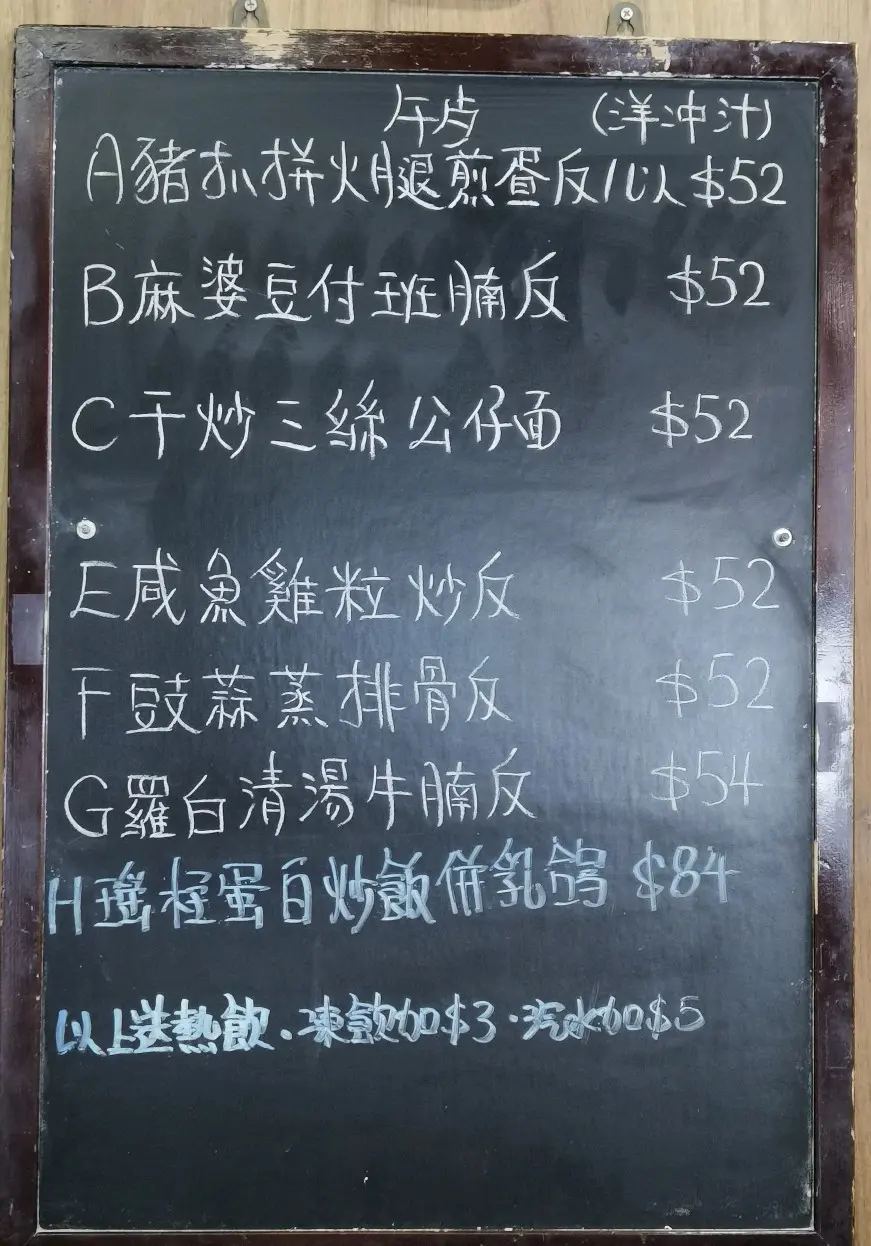 午歺 (洋冲汁)
A豬扒拼火腿煎疍反/以 $52
B麻婆豆付班腩反 $52
C干炒三絲公仔面 $52
E咸魚雞粒炒反 $52
F豉蒜蒸排骨反 $52
G羅白清湯牛腩反 $54
H瑤柱蛋白炒飯併乳鴿 $84
以上送熱飲.凍飲加$3.汽水加$5